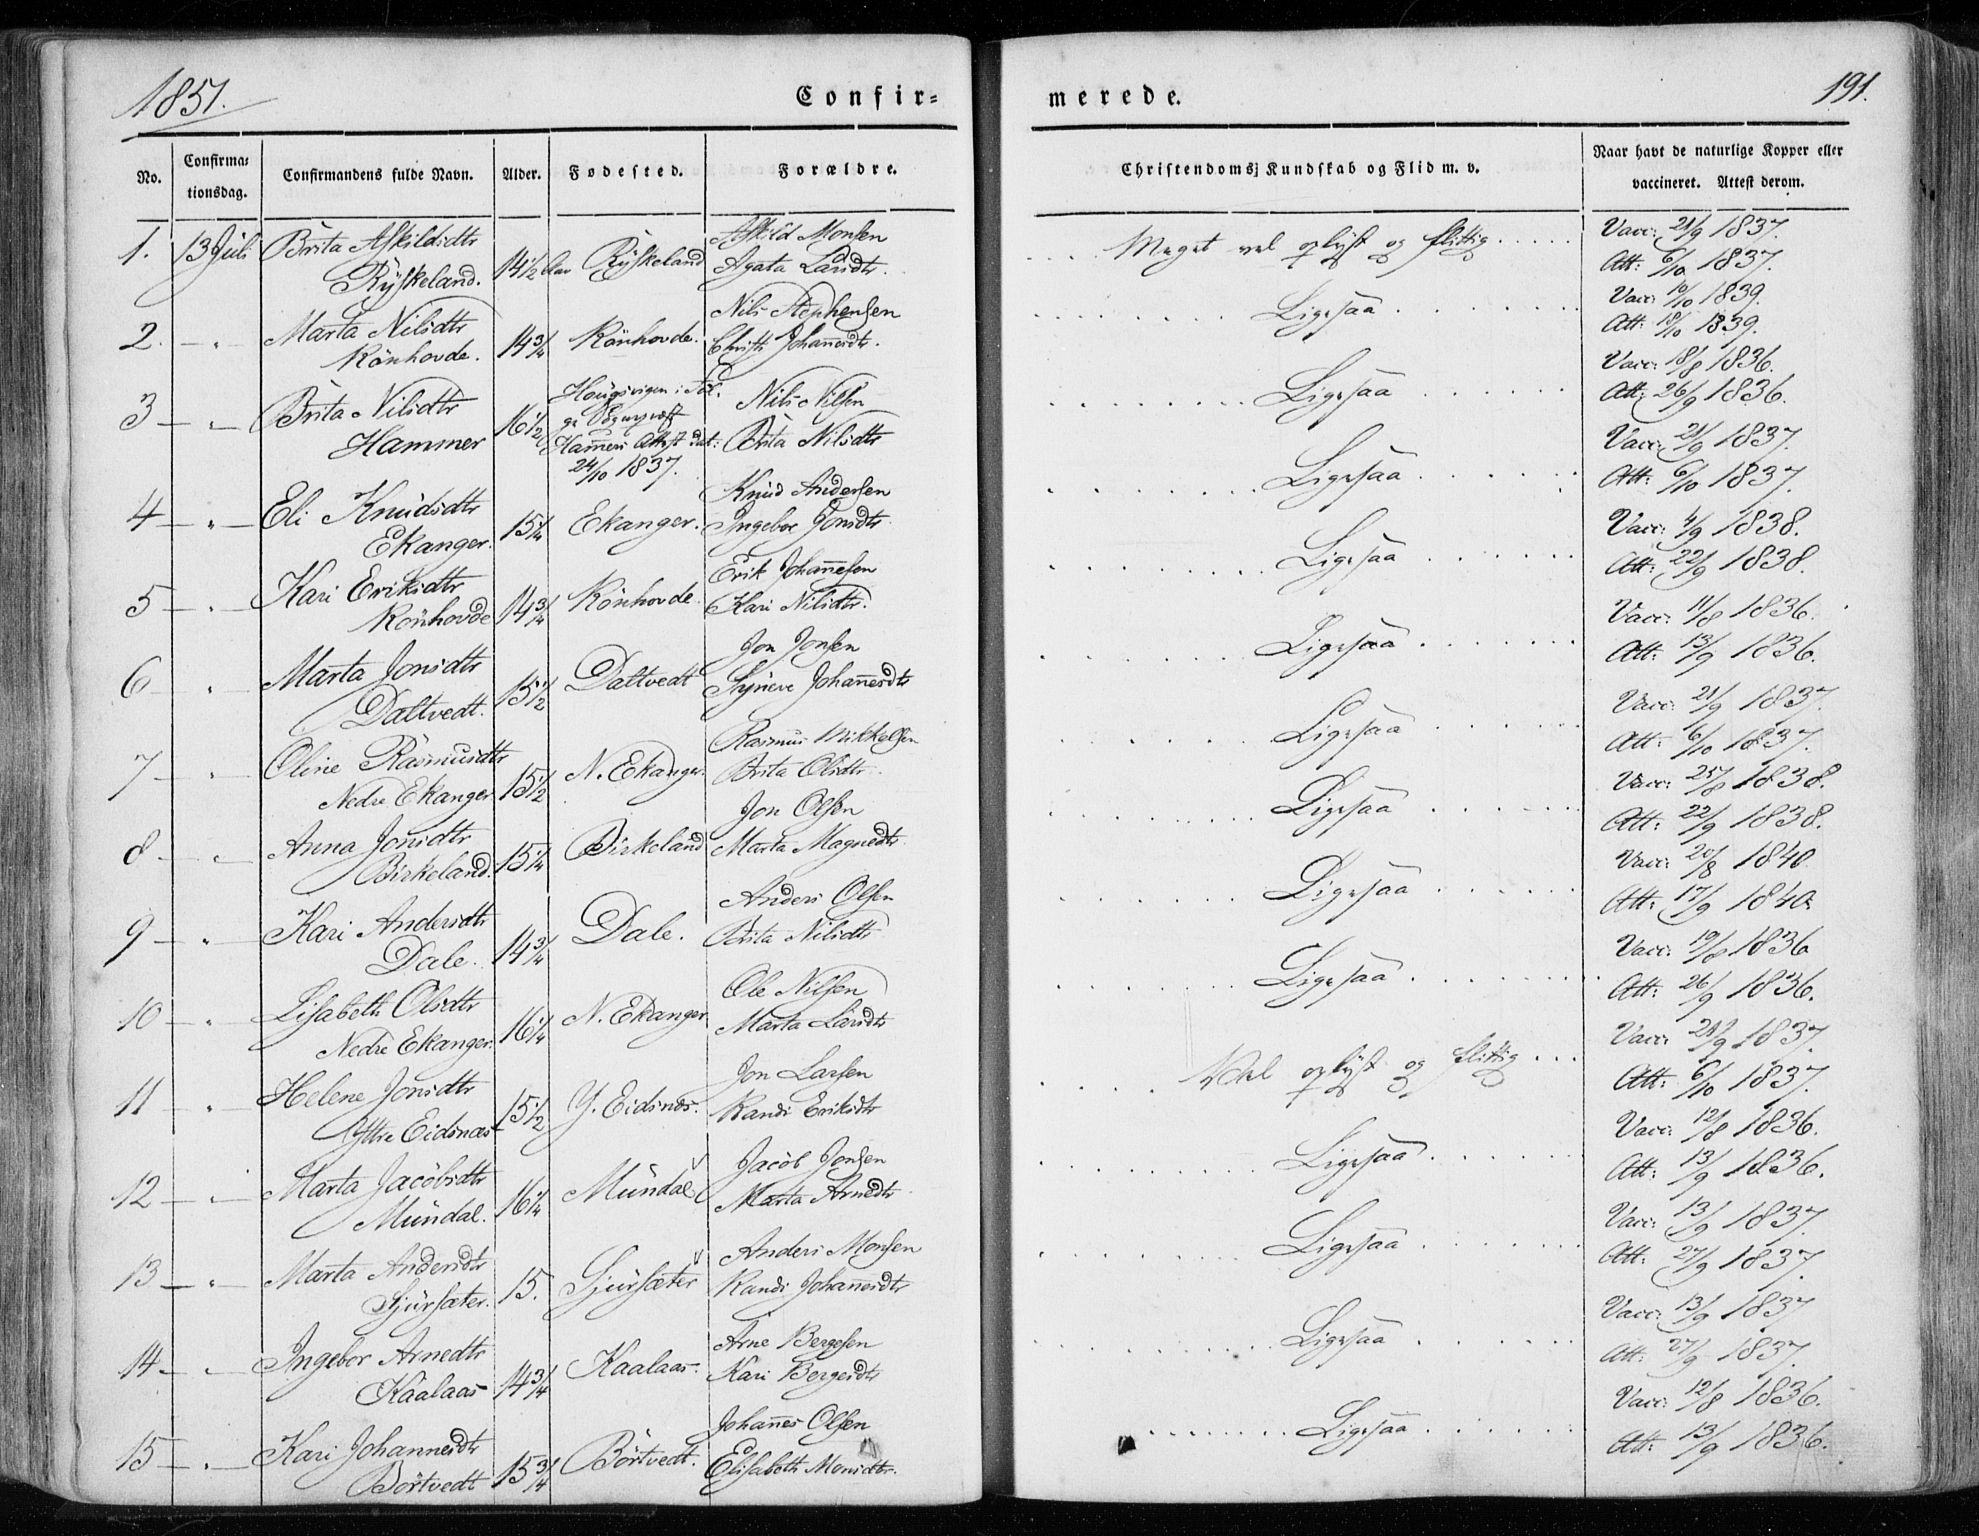 1851.
Confir=
merede.
191.
No.
Confirma=
tionsdag.
Confirmandens fulde Navn.
Alder.
Fødested.
Forældre.
Christendoms; Kundskab og Flid m. v.
Naar havt de naturlige Kopper eller
vaccineret. Attest derom.
1. 13 Juli Brita Askildsdtr 14½ Aar Ryskeland Askild Monsen
Ryskeland. Agata Larsdtr.
Meget vel oplyst og flittig
Vacc: 21/9 1837.
Att: 6/10 1837.
2. - " - Marta Nilsdtr 14¾ Rönhovde. Nils Stephensen
Rönhovde. Christi Johannesdtr.
Ligesaa
Vacc: 10/10 1839.
Att: 18/10 1839.
3 - " - Brita Nilsdtr 16½ Hougsvigen i
Hammer
Hammers Attest dat:
24/10 1837.
Nils Nilsen
Brita Nilsdtr
Ligesaa
Vacc: 18/8 1836.
Att: 26/9 1836.
4 - " - Eli Knudsdtr 15¼ Ekanger. Knud Andersen
Ekanger. Ingebor Jonsdtr
Ligesaa
Vacc: 21/9 1837.
Att: 6/10 1837.
5 - " - Kari Eriksdtr 14¾ Rönhovde Erik Johannesen
Rönhovde Kari Nilsdtr.
Ligesaa
Vacc: 4/9 1838.
Att: 22/9 1838.
6 - " - Marta Jonsdtr 15½ Daltvedt Jon Jonsen
Daltvedt. Syneve Johannesdtr
Ligesaa
Vacc: 11/8 1836.
Att: 13/9 1836.
7 - " - Oline Rasmusdtr 15½ N. Ekanger. Rasmus Mikkelsen
Nedre Ekanger Brita Olsdtr
Ligesaa
Vacc: 21/9 1837.
Att: 6/10 1837.
8 - " - Anna Jonsdtr 15¼ Birkeland Jon Olsen
Birkeland. Marta Magnedtr
Ligesaa
Vacc: 25/8 1838.
Att: 22/9 1838.
9 - " - Kari Andersdtr 14¾ Dale. Anders Olsen
Dale. Brita Nilsdtr
Ligesaa
Vacc: 20/8 1840
Att: 17/9 1840.
10 - " Lisabeth Olsdtr 16¼ N. Ekanger Ole Nilsen
Nedre Ekanger. Marta Larsdtr
Ligesaa
Vacc: 19/8 1836
Att: 26/9 1836.
11 - " - Helene Jonsdtr 15½ Y. Eidsnes. Jon Larsen
Yttre Eidsnæs Randi Eriksdtr
Vel oplyst og flittig
Vacc: 21/9 1837.
Att: 6/10 1837.
12 - " - Marta Jacobsdtr 16¼ Mundal Jacob Jonsen
Mundal. Marta Arnedtr
Ligesaa
Vacc: 12/8 1836.
Att: 13/9 1836.
13 - " - Marta Andersdtr 15. Sjursæter Anders Monsen
Sjursæter. Randi Johannesdtr
Ligesaa
Vacc: 13/9 1837.
Att: 27/9 1837.
14 - " - Ingebor Arnedtr 14¾ Kaalaas. Arne Bergesen
Kaalaas Kari Bergesdtr
Ligesaa
Vacc: 13/9 1837
Att: 27/9 1837.
15 - " - Kari Johannesdtr 15¾ Börtvedt. Johannes Olsen
Börtvedt Elisabeth Monsdtr.
Ligesaa
Vacc: 12/8 1836.
Att: 13/9 1836.